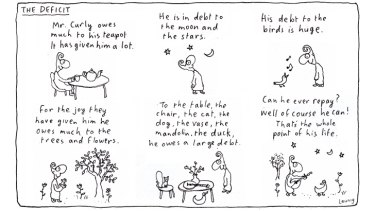 THE DEFICIT
Mr. Curly owes
much to his teapot
It has given him a lot.
He is in debt to
the moon and
the stars.
His debt to the
birds is huge.
For the joy they
have given him he
owes much to the
trees and flowers.
To the table, the
chair, the cat, the
dog, the vase, the
mandolin, the duck,
he owes a large debt.
Can he ever repay?
Well of course he can!
That's the whole
point of his life.
Leunig